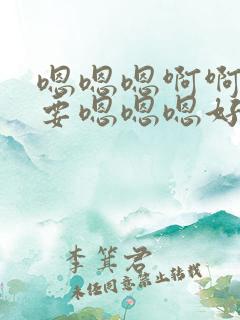 嗯嗯嗯啊啊
要嗯嗯嗯好
李箕君
未经同意禁止转载